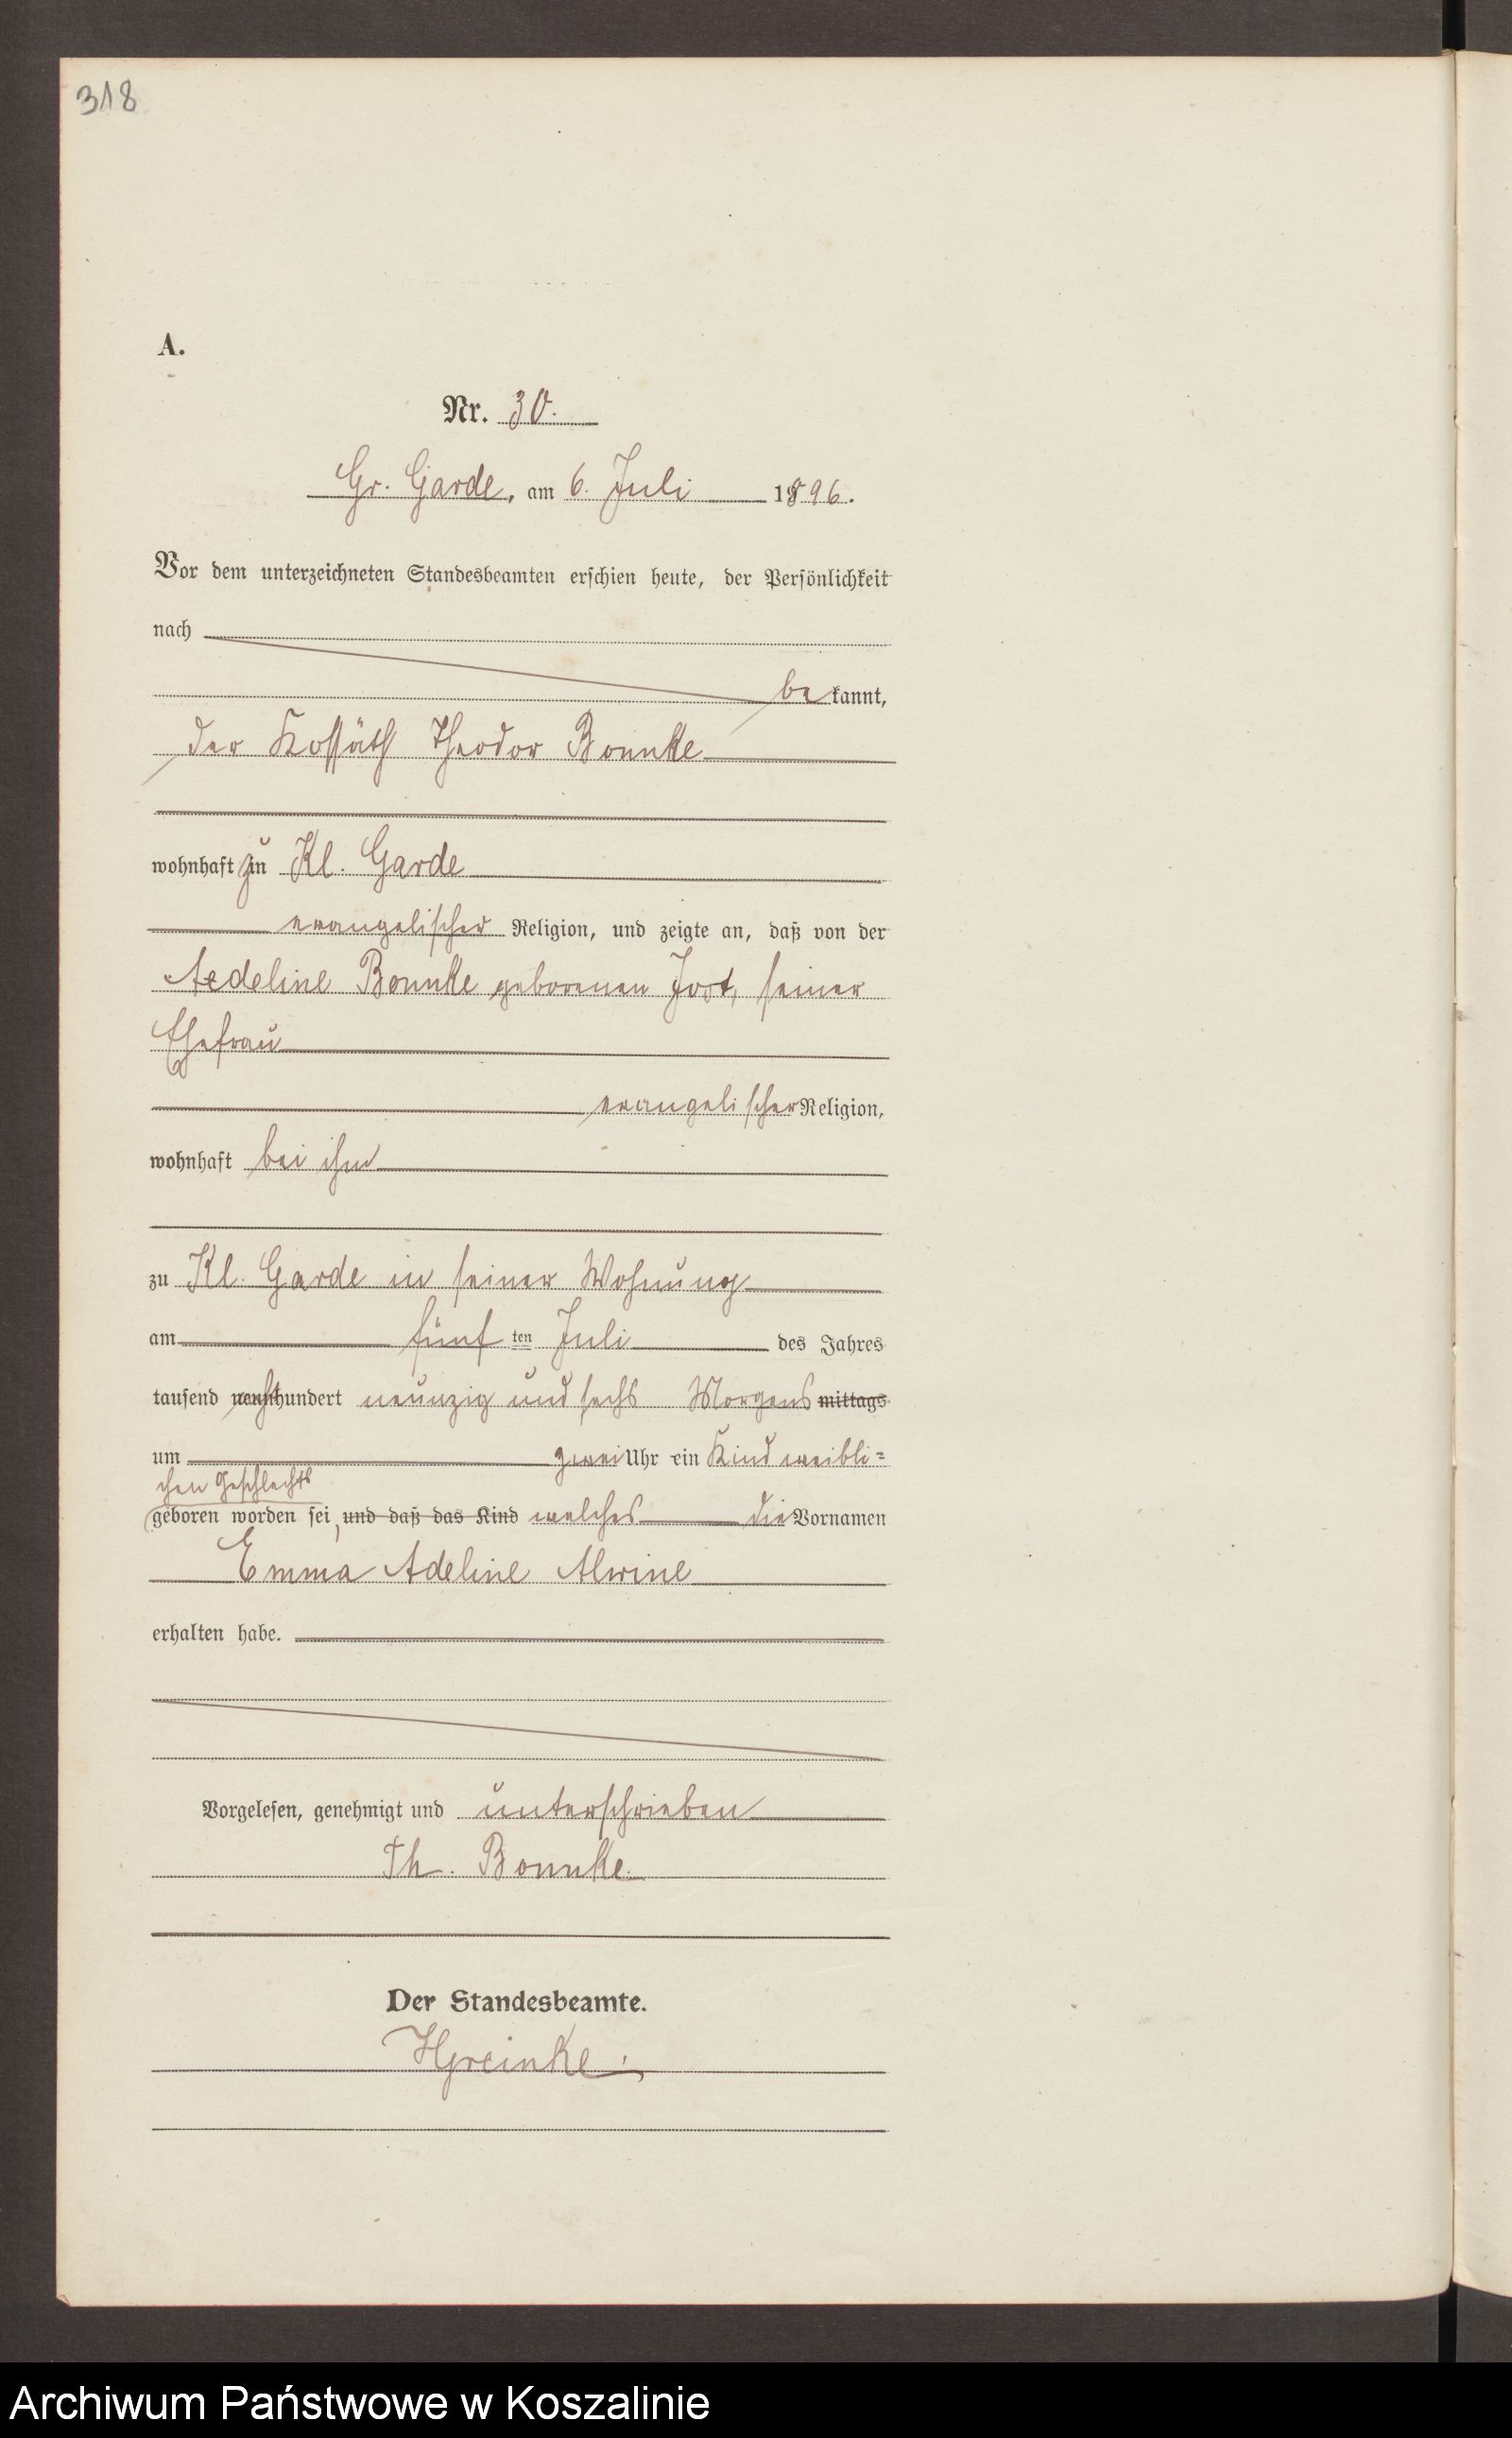 318
A.
Nr. 30.
Gr. Garde, am 6. Juli 1896.
Vor dem unterzeichneten Standesbeamten erschien heute, der Persönlichkeit
nach
bekannt,
der Kossäth Theodor Bonnke
wohnhaft zu Kl. Garde
evangelischer Religion, und zeigte an, daß von der
Adeline Bonnke geborenen Jost, seiner
Ehefrau
evangelischer Religion,
wohnhaft bei ihm
zu Kl. Garde in seiner Wohnung
am fünften Juli des Jahres
tausend achthundert neunzig und sechs Morgens mittags
um zwei Uhr ein Kind weibli=
chen Geschlechts
geboren worden sei, und daß das Kind welches die Vornamen
Emma Adeline Alwine
erhalten habe.
Vorgelesen, genehmigt und unterschrieben
Th. Bonnke.
Der Standesbeamte.
Archiwum Państwowe w Koszalinie